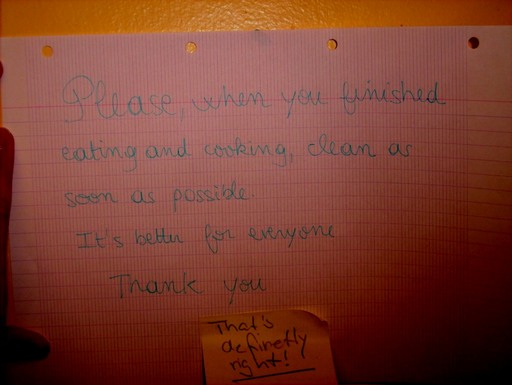 Please, when you finished
eating and cooking, clean as
soon as possible.
It's better for everyone
Thank you
That's
definetly
right!